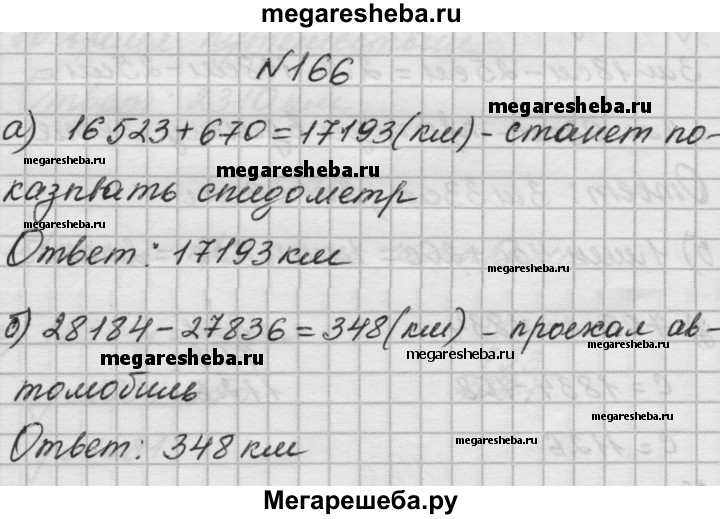 megaresheba.ru
№166
megaresheba.ru
а) 16523+670=17193(км) - станет по-
megaresheba.ru
megaresheba.ru
казывать спидометр
megaresheba.ru
Ответ: 17193 км
megaresheba.ru
б) 28184-27836=348(км) - проехал ав-
megaresheba.ru
megaresheba.ru
megaresheba.ru
томобиль
megaresheba.ru
Ответ: 348 км
megaresheba.ru
megaresheba.ru
Мегарешеба.ру